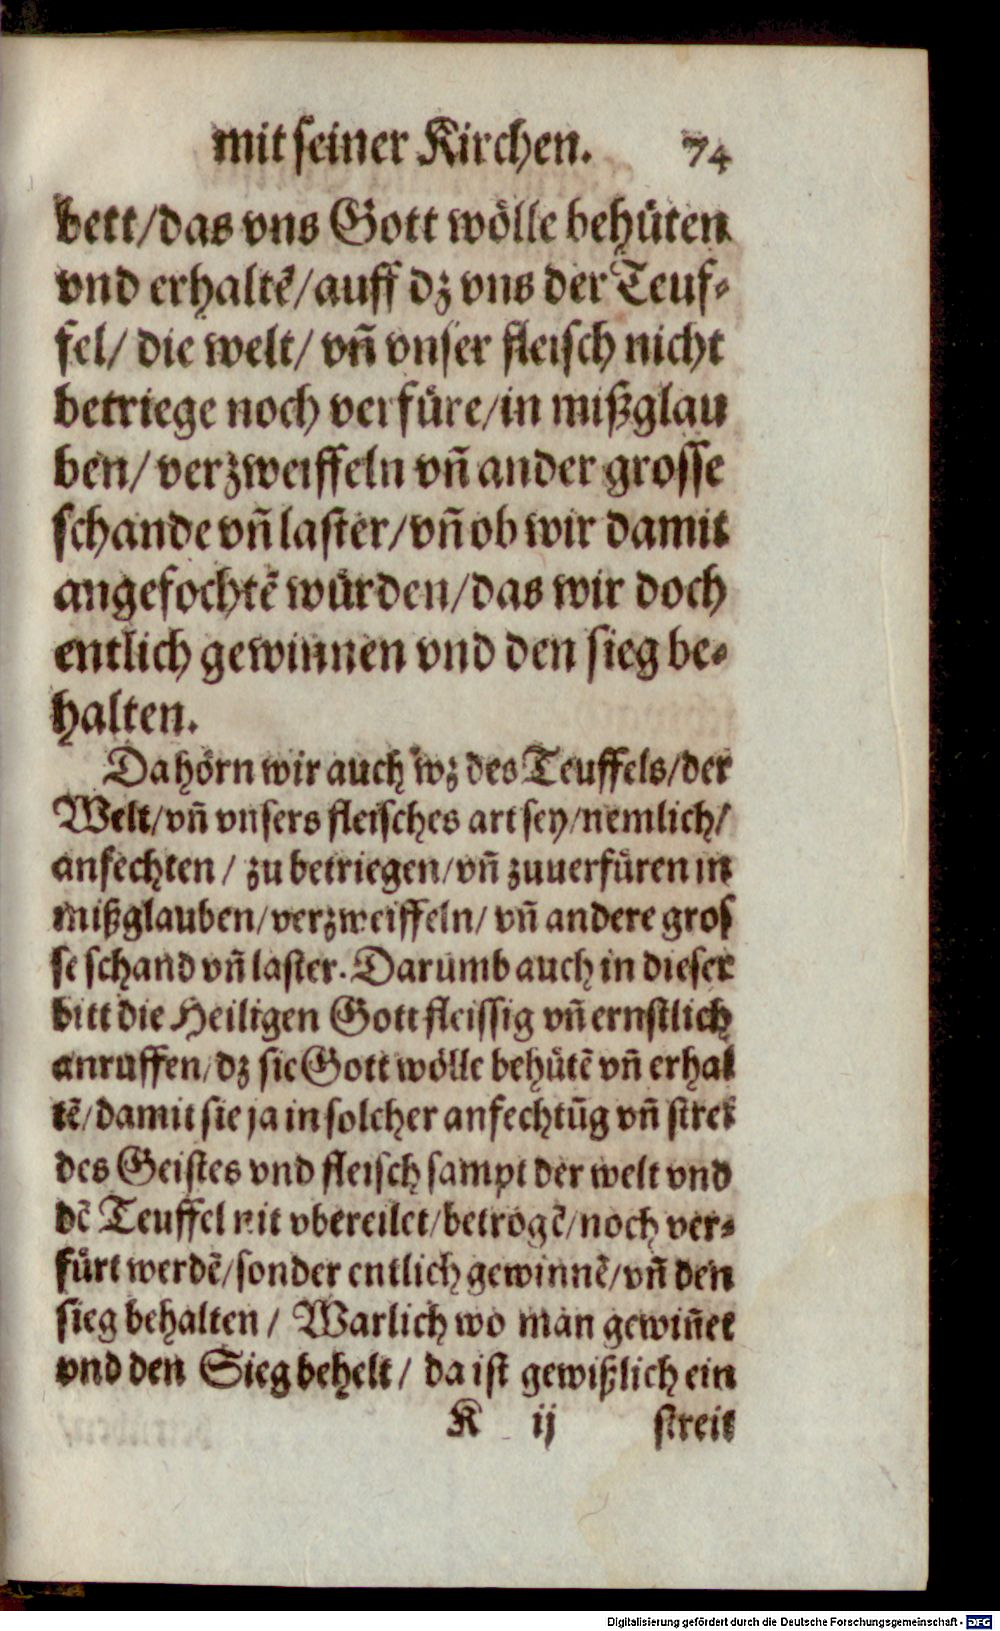 mit seiner Kirchen. 74
bett/das vns Gott wölle behüten
vnd erhaltē/auff dz vns der Teuf-
fel/ die welt/ vn̄ vnser fleisch nicht
betriege noch verfüre/in mißglau
ben/ verzweiffeln vn̄ ander grosse
schande vn̄ laster/vn̄ ob wir damit
angefochtē würden/das wir doch
entlich gewinnen vnd den sieg be-
halten.
Da hörn wir auch wz des Teuffels/der
Welt/vn̄ vnsers fleisches art sey/nemlich/
anfechten/ zu betriegen/vn̄ zuuerfüren in
mißglauben/verzweiffeln/ vn̄ andere gros
se schand vn̄ laster. Darumb auch in dieser
bitt die Heiligen Gott fleissig vn̄ ernstlich
anruffen/dz sie Gott wölle behütē vn̄ erhal
tē/damit sie ja in solcher anfechtūg vn̄ streit
des Geistes vnd fleisch sampt der welt vnd
dē Teuffel nit vbereilet/betrogē/noch ver-
fürt werdē/sonder entlich gewinnē/vn̄ den
sieg behalten/ Warlich wo man gewin̄et
vnd den Sieg behelt/ da ist gewißlich ein
K ij streit
Digitalisierung gefördert durch die Deutsche Forschungsgemeinschaft - DFG